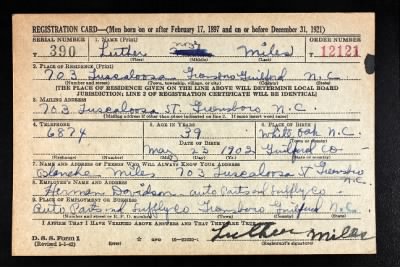 REGISTRATION CARD—(Men born on or after February 17, 1897 and on or before December 31, 1921)
SERIAL NUMBER 1. NAME (Print) ORDER NUMBER
T 390 Luther Miles T 12121
(First) (Middle) (Last)
2. PLACE OF RESIDENCE (Print)
703 Tuscaloosa Greensboro Guilford N.C.
(Number and street) (Town, township, village, or city) (County) (State)
[THE PLACE OF RESIDENCE GIVEN ON THE LINE ABOVE WILL DETERMINE LOCAL BOARD
JURISDICTION; LINE 2 OF REGISTRATION CERTIFICATE WILL BE IDENTICAL]
3. MAILING ADDRESS
703 Tuscaloosa ST. Greensboro N.C.
(Mailing address if other than place indicated on line 2. If same insert word same)
4. TELEPHONE 5. AGE IN YEARS 6. PLACE OF BIRTH
6874 39 White Oak N.C.
DATE OF BIRTH (Town or county)
Mar 23 1902 Guilford Co
(Exchange) (Number) (Mo.) (Day) (Yr.) (State or country)
7. NAME AND ADDRESS OF PERSON WHO WILL ALWAYS KNOW YOUR ADDRESS
Blanche Miles 703 Tuscaloosa ST Greensboro N.C.
8. EMPLOYER'S NAME AND ADDRESS
Herman Davidson auto Parts and Supply Co
9. PLACE OF EMPLOYMENT OR BUSINESS
Auto Parts and Supply Co Greensboro Guilford N.C.
(Number and street or R. F. D. number) (Town) (County) (State)
I AFFIRM THAT I HAVE VERIFIED ABOVE ANSWERS AND THAT THEY ARE TRUE.
D. S. S. Form 1
(Revised 1-1-42) GPO Luther Miles
(Registrant's signature)